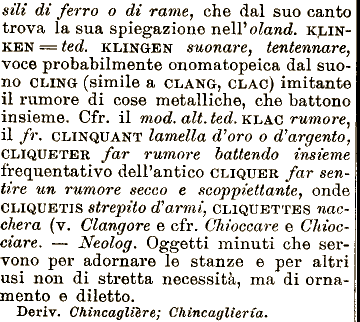 sili di ferro o di rame, che dal suo canto
trova la sua spiegazione nell'oland. KLIN-
KEN = ted. KLINGEN suonare, tentennare,
voce probabilmente onomatopeica dal suo-
no CLING (simile a CLANG, CLAC) imitante
il rumore di cose metalliche, che battono
insieme. Cfr. il mod. alt. ted. KLAC rumore,
il fr. CLINQUANT lamella d'oro o d'argento,
CLIQUETER far rumore battendo insieme
frequentativo dell'antico CLIQUER far sen-
tire un rumore secco e scoppiettante, onde
CLIQUETIS strepito d'armi, CLIQUETTES nac-
chera (v. Clangore e cfr. Chioccare e Chioc-
ciare. — Neolog. Oggetti minuti che ser-
vono per adornare le stanze e per altri
usi non di stretta necessità, ma di orna-
mento e diletto.
Deriv. Chincaglière; Chincagliería.